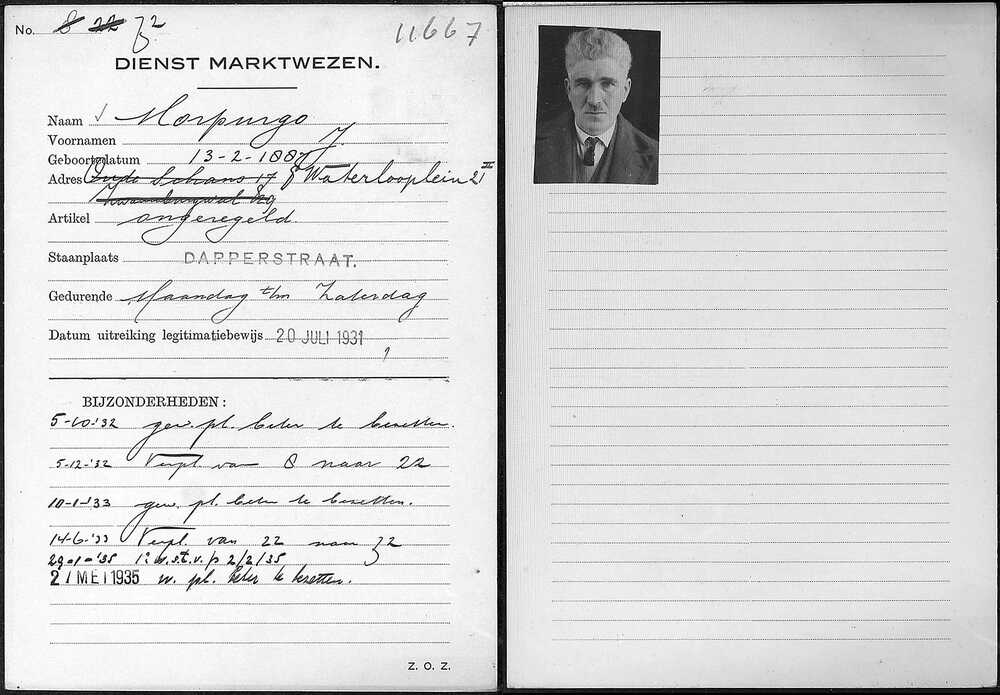 No. 8 22 32
11667
DIENST MARKTWEZEN.
Naam Morpurgo
Voornamen J.
Geboortedatum 13-2-1887
Adres Oude Schans 17 Waterlooplein 21 II
Zwanenburgwal
Artikel ongeregeld.
Staanplaats DAPPERSTRAAT.
Gedurende Maandag t/m Zaterdag
Datum uitreiking legitimatiebewijs 20 JULI 1931
BIJZONDERHEDEN:
5-10-'32 gew. pl. beter te bezetten.
5-12-'32 Verpl. van 8 naar 22
10-1-'33 gew. pl. beter te bezetten.
14-6-'33 Verpl. van 22 naar 32
29-1-'35 1e w.s.t.v.p 2/2/35
27 MEI 1935 w. pl. beter te bezetten.
Z. O. Z.